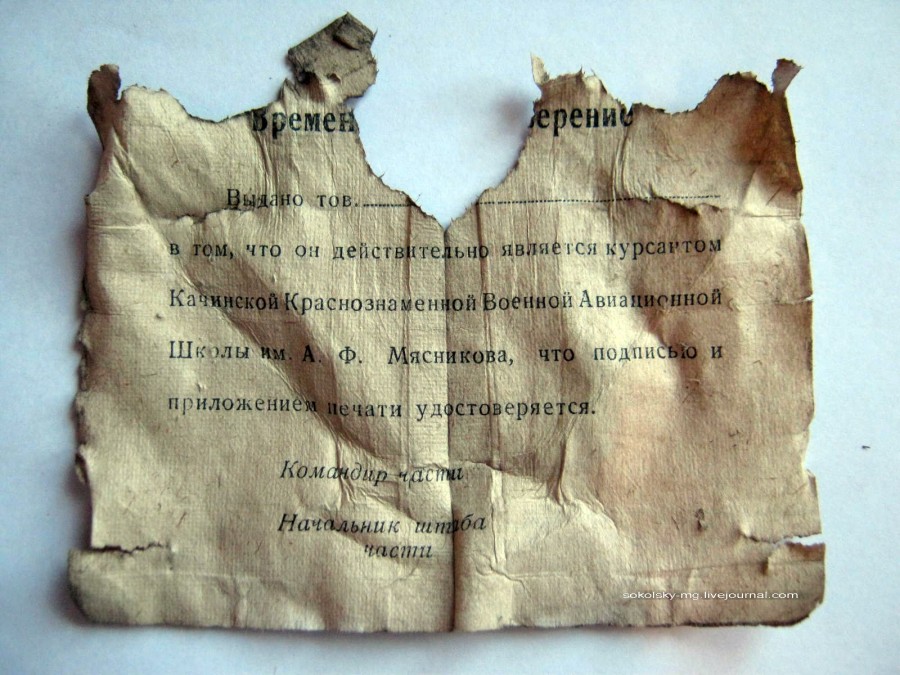 Времен ерение
Выдано тов.
в том, что он действительно является курсантом
Качинской Краснознаменной Военной Авиационной
Школы им. А. Ф. Мясникова, что подписью и
приложением печати удостоверяется.
Командир части
Начальник штаба
части
sokolsky-mg.livejournal.com